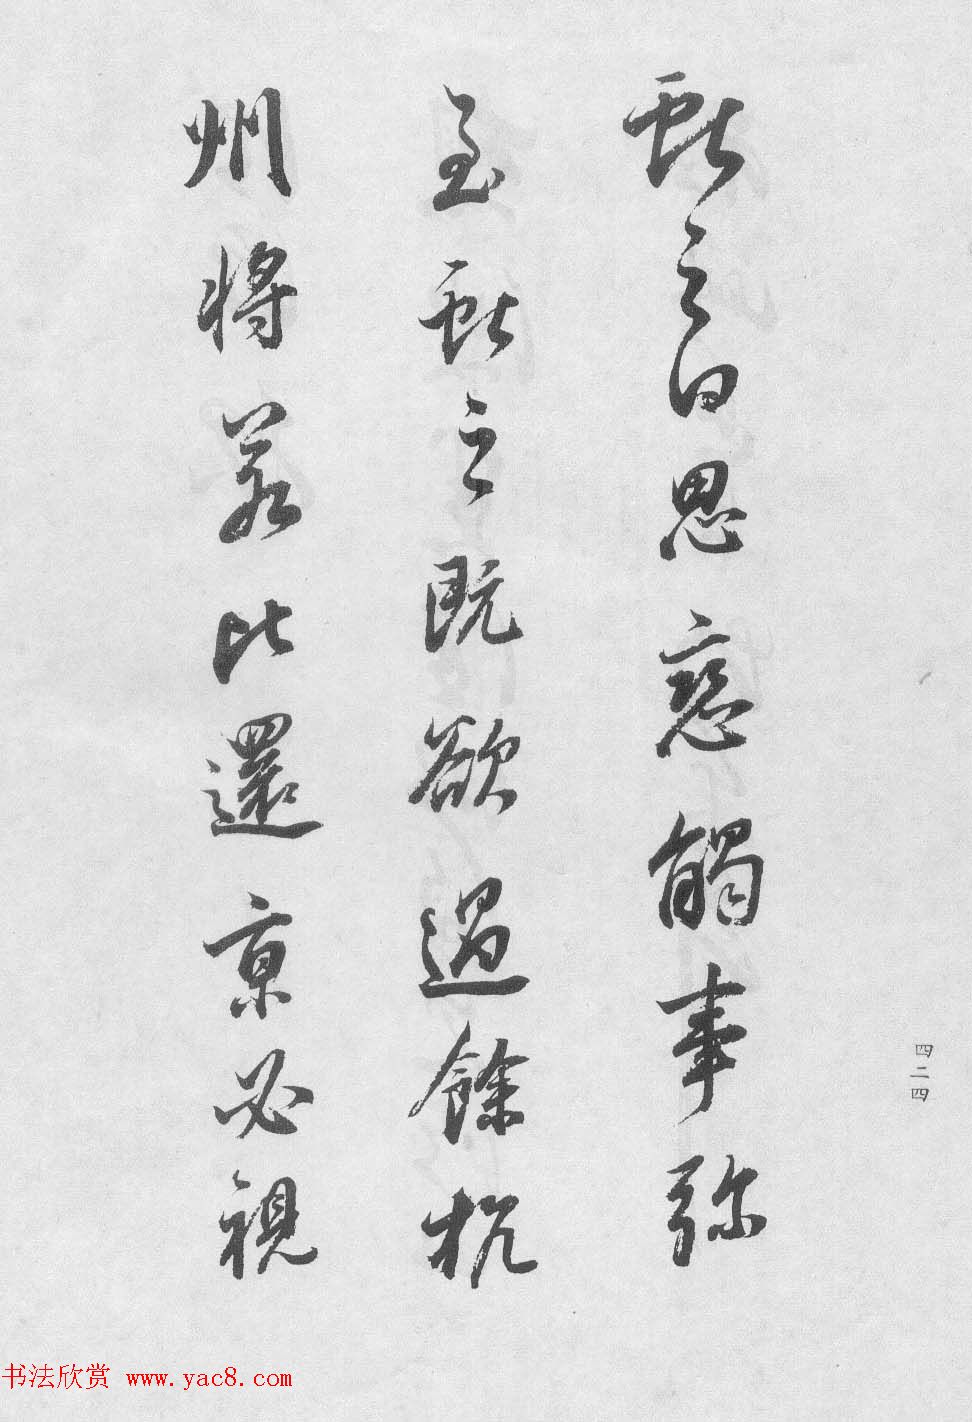 獻之白思戀觸事弥
至獻之既欲過餘杭
州將若比還京必視
四二四
书法欣赏 www.yac8.com